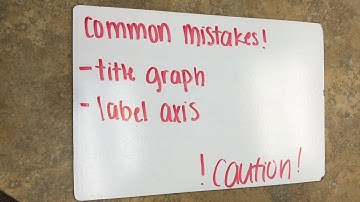 common mistakes!
-title graph
-label axis
! Caution!